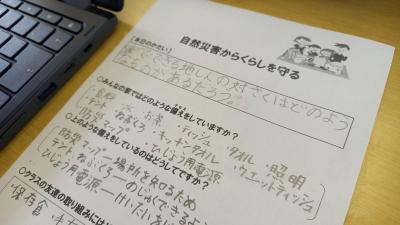 自然災害からくらしを守る
【本日のめあて】
家でできる地しんの対さくはどのよう
なものがあるだろう。
○みんなの家ではどのような備えをしていますか？
・食料 ・水 お茶 ・ティッシュ ・タオル ・照明
・テント ・ねぶくろ ・キッチンタオル ・ウェットティッシュ
・防災マップ ・ひじょう用電源
○上のような備えをしているのはどうしてですか？
防災マップ―場所を知るため
テント ねぶくろ―のじゅくできるよう
ひじょう用電源―けいたいを
○クラスの友達の取り組みには
・保存食